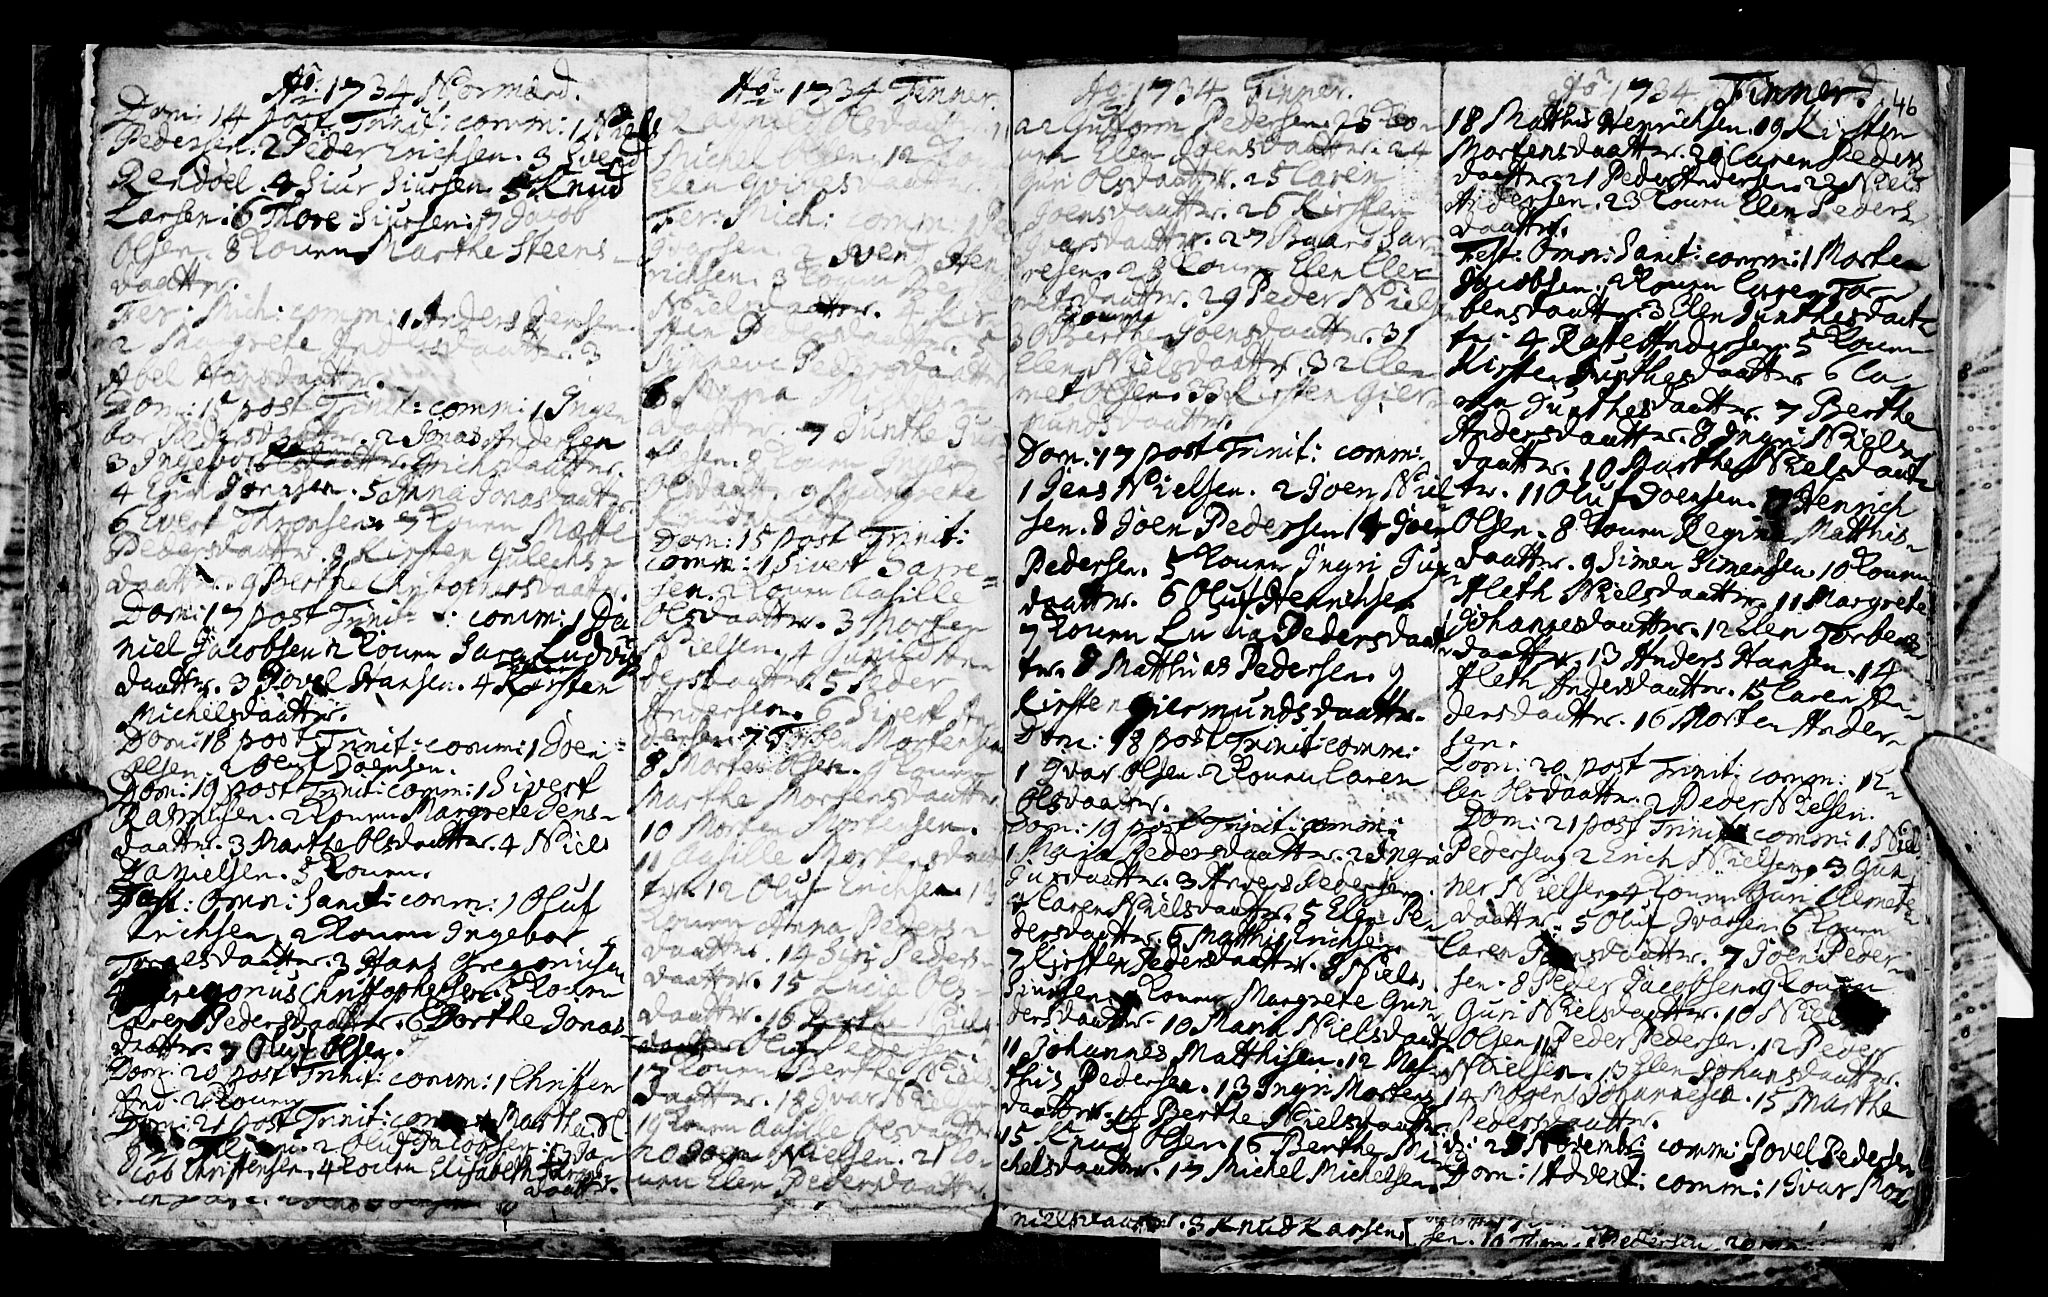 Aō 1734 Normænd.
Dom: 14 post Trinit: comm: 1 Niels
Pedersen. 2 Peder Erichsen. 3 Svend
Rendöel. 4 Siur Siursen. 5 Knud
Larsen: 6 Thore Siursen: 7 Jacob
Olsen. 8 Konen Marthe Steens-
daatter.
Fer: Mich: comm: 1 Anders Jensen.
2 Margrete Andersdaatter. 3
Abel Hansdaatter.
Dom: 15 post Trinit: comm: 1 Inge-
bor Pedersdaatter. 2 Jonas Andersen
3 Ingebor Erichsdaatter.
4 Jonasen. 5 Anna Jonasdaatter
6 Evert Thronsen. 7 Konen Mathe
Pedersdaatter. 8 Kirsten
daatter. 9 Berthe Christophersdaatter
Dom: 17 post Trinit: comm: 1 Da-
niel Jacobsen 2 Konen Sara Ludvigs
daatter. 3 Povel Hansen. 4 Kirsten
Michelsdaatter.
Dom: 18 post Trinit: comm: 1 Joen
Olsen. 2 Oluf Joensen.
Dom: 19 post Trinit: comm: 1 Sivert
Rasmusen. 2 Konen Margrete Jens-
daatter. 3 Marthe Olsdaatter. 4 Niels
Danielsen. 5 Konen.
Fest: Omn: Sanct: comm: 1 Oluf
Erichsen. 2 Konen Ingebor
Torgesdaatter. 3 Hans Gregoriusen
4 Gregorius Christophersen. 5 Konen
Karen Pedersdaatter. 6 Dorthe Jonas-
daatter. 7 Oluf Olsen.
Dom: 20 post Trinit: comm: 1 Christen
And. 2 Konen
Dom: 21 post Trinit: comm: Marthe
2 Oluf Jacobsen. 3 Ja-
cob Christensen. 4 Konen Elisabeth
daatter.
Aō 1734 Finner.
Olsdaatter. 11
Michel Olsen. 12 Konen
Elen Gvirisdaatter
Fer: Mich: comm: 1 Pe
Ivarsen. 2 Svend Hen-
richsen. 3 Konen Berthe
Nielsdaatter. 4 Kir-
sten Pedersdaatter. 5
Synneve Pedersdaatter
6 Maria
daatter. 7 Gunthe
Olsen. 8 Konen Inger
Olsdaatter. 9 Margrete
Dom: 15 post Trinit:
comm: 1 Sivert Sarre-
sen. 2 Konen Aasille
Olsdaatter. 3 Morten
Nielsen. 4 Gunild An-
dersdaatter. 5 Peder
Andersen. 6 Sivert An-
dersen. 7 Torben Mortensen
8 Morten Olsen. 9 Konen
Marthe Mortensdaatter
10 Morten Mortensen.
11 Aasille Mortensdaat-
ter. 12 Oluf Erichsen. 13
Konen Anna Peders-
daatter. 14 Siri Peders-
daatter. 15 Lucie Ols-
daatter. 16
Oluf Pedersen.
17 Konen Berthe Niels-
daatter. 18 Ivar Nielsen
19 Konen Aasille Olsdaatter
20 Joen Nielsen. 21 Ko-
nen Elen Pedersdaatter.
Aō 1734 Finner.
22 Guttorm Pedersen. 23 Ko-
nen Elen Joensdaatter. 24
Guri Olsdaatter. 25 Caren
Joensdaatter. 26 Kirsten
Ivarsdaatter. 27 Baard Sar-
resen. 28 Konen Elen Ele-
metsdaatter. 29 Peder Niels
30 Konen Berthe Joensdaatter. 31
Elen Nielsdaatter. 32 Ele-
met Olsen. 33 Kirsten Gier-
mundsdaatter.
Dom: 17 post Trinit: comm:
1 Jens Nielsen. 2 Joen Niel-
sen. 3 Joen Pedersen. 4 Joen
Pedersen. 5 Konen Ingri Jun
daatter. 6 Oluf Henrichsen
7 Konen Lucia Pedersdaat-
ter. 8 Matthias Pedersen. 9
Kirsten Giermundsdaatter.
Dom: 18 post Trinit: comm:
1 Ivar Olsen. 2 Konen Caren
Olsdaatter.
Dom: 19 post Trinit: comm:
1 Maria Pedersdaatter. 2 Ingri
daatter. 3 Anders Pedersen.
4 Caren Nielsdaatter. 5 Elen Pe-
dersdaatter. 6 Matthis Erichsen
7 Kirsten Pedersdaatter. 8 Niels
Siursen. 9 Konen Margrete Gun-
dersdaatter. 10 Maria Nielsdaatter
11 Johannes Matthisen. 12 Mat-
this Pedersen. 13 Ingri Mortens
daatter. 14 Berthe Nielsdaatter.
15 Knud Olsen. 16 Berthe Mi-
chelsdaatter. 17 Michel Michelsen.
3 Knud Larsen
46
Aō 1734 Finner.
18 Matthis Henrichsen. 19 Kirsten
Mortensdaatter. 20 Caren Peders
daatter. 21 Peder Andersen. 22 Niels
Andersen. 23 Konen Elen Peders
daatter.
Fest: Omn: Sanct: comm: 1 Morten
Jacobsen. 2 Konen Caren Tor-
bensdaatter. 3 Elen Gunthesdaat-
ter. 4 Andersen. 5 Konen
Kirsten Gunthesdaatter 6 Ca-
ren Gunthesdaatter. 7 Berthe
Andersdaatter. 8 Ingri Niels
daatter. 10 Marthe Nielsdaat-
ter. 11 Oluf Joensen. 7 Henrich
Olsen. 8 Konen Regina Matthis-
daatter. 9 Simen Simensen. 10 Konen
Aleth Nielsdaatter. 11 Margrete
Johannesdaatter. 12 Elen Torbens
daatter. 13 Anders Hansen. 14
Aleth Andersdaatter. 15 Caren An-
dersdaatter. 16 Morten Ander-
sen.
Dom: 20 post Trinit: comm: 1 E-
len Olsdaatter. 2 Peder Nielsen.
Dom: 21 post Trinit: comm: 1 Niels
Pedersen. 2 Erich Nielsen. 3 Gun-
ner Nielsen. 4 Konen Guri Elemets-
daatter. 5 Oluf Ivarsen. 6 Konen
Caren daatter. 7 Joen Peder-
sen. 8 Peder Jacobsen. 9 Konen
Guri Nielsdaatter. 10 Niels
Olsen 11 Peder Pedersen. 12 Peder
Nielsen. 13 Elen Johansdaatter.
14 Mogens Johannesen. 15 Marthe
Pedersdaatter.
d: 29 Novembr: comm: Povel Pedersen
Dom: 1 Advent: comm: 1 Ivar
sen. Pedersen